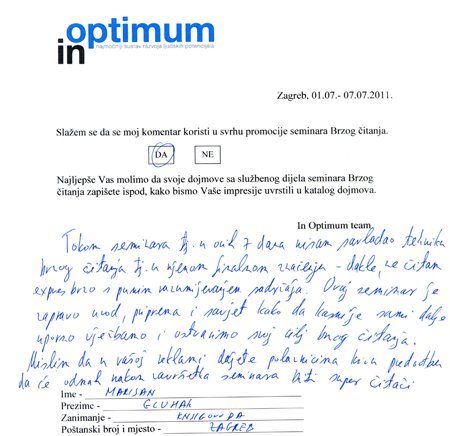 in optimum
najmoćniji sustav razvoja ljudskih potencijala
Zagreb, 01.07.- 07.07.2011.
Slažem se da se moj komentar koristi u svrhu promocije seminara Brzog čitanja.
DA NE
Najljepše Vas molimo da svoje dojmove sa službenog dijela seminara Brzog
čitanja zapišete ispod, kako bismo Vaše impresije uvrstili u katalog dojmova.
In Optimum team
Tokom seminara tj. u ovih 7 dana nisam savladao tehniku
brzog čitanja tj. u njenom finalnom značenju - dakle, ne čitam
expres brzo s punim razumijevanjem sadržaja. Ovaj seminar je
zapravo uvod, priprema i savjet kako da kasnije sami dalje
uporno vježbamo i ostvarimo svoj cilj brzog čitanja.
Mislim da u vašoj reklami dajete polaznicima krivu predodžbu
da će odmah nakon završetka seminara biti super čitači
Ime - MARIJAN
Prezime - GLUHAK
Zanimanje - KNJIGOVOĐA
Poštanski broj i mjesto - ZAGREB